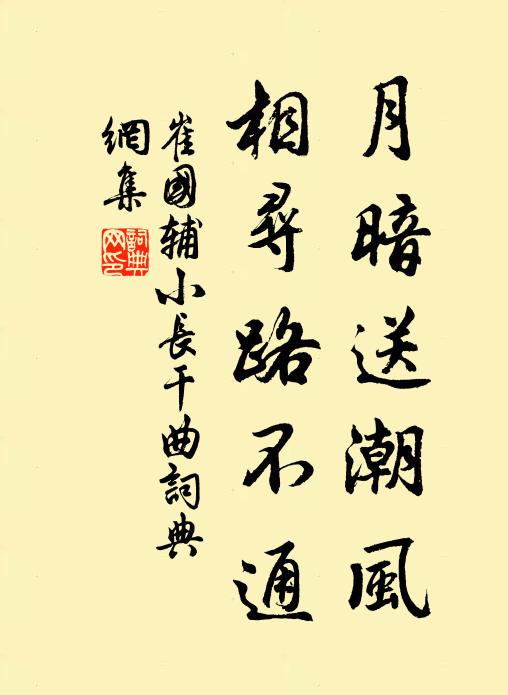 月暗送潮風
相尋路不通
崔國輔小長干曲詞典
網集
詞典
网印